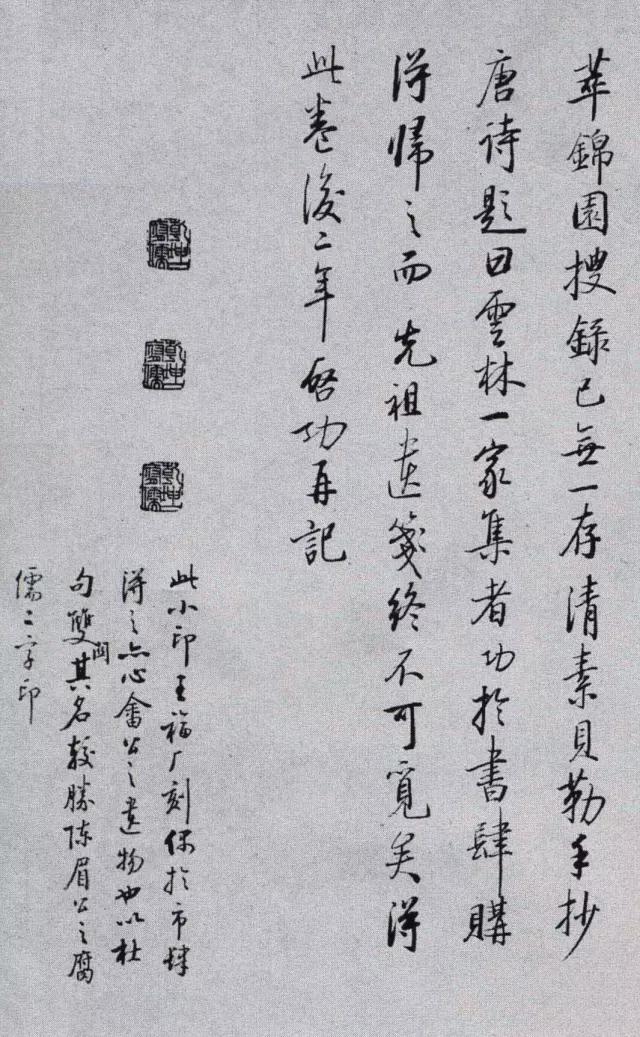 萃錦園搜録已無一存清素貝勒手抄
唐詩題曰雲林一家集者功於書肆購
得歸之而先祖遺箋終不可覓矣得
此卷後二年啓功再記
乾坤腐儒
乾坤腐儒
乾坤腐儒
此小印王福厂刻偶於市肆
得之亦心畬公之遺物也以杜
句雙關其名較勝陳眉公之腐
儒二字印